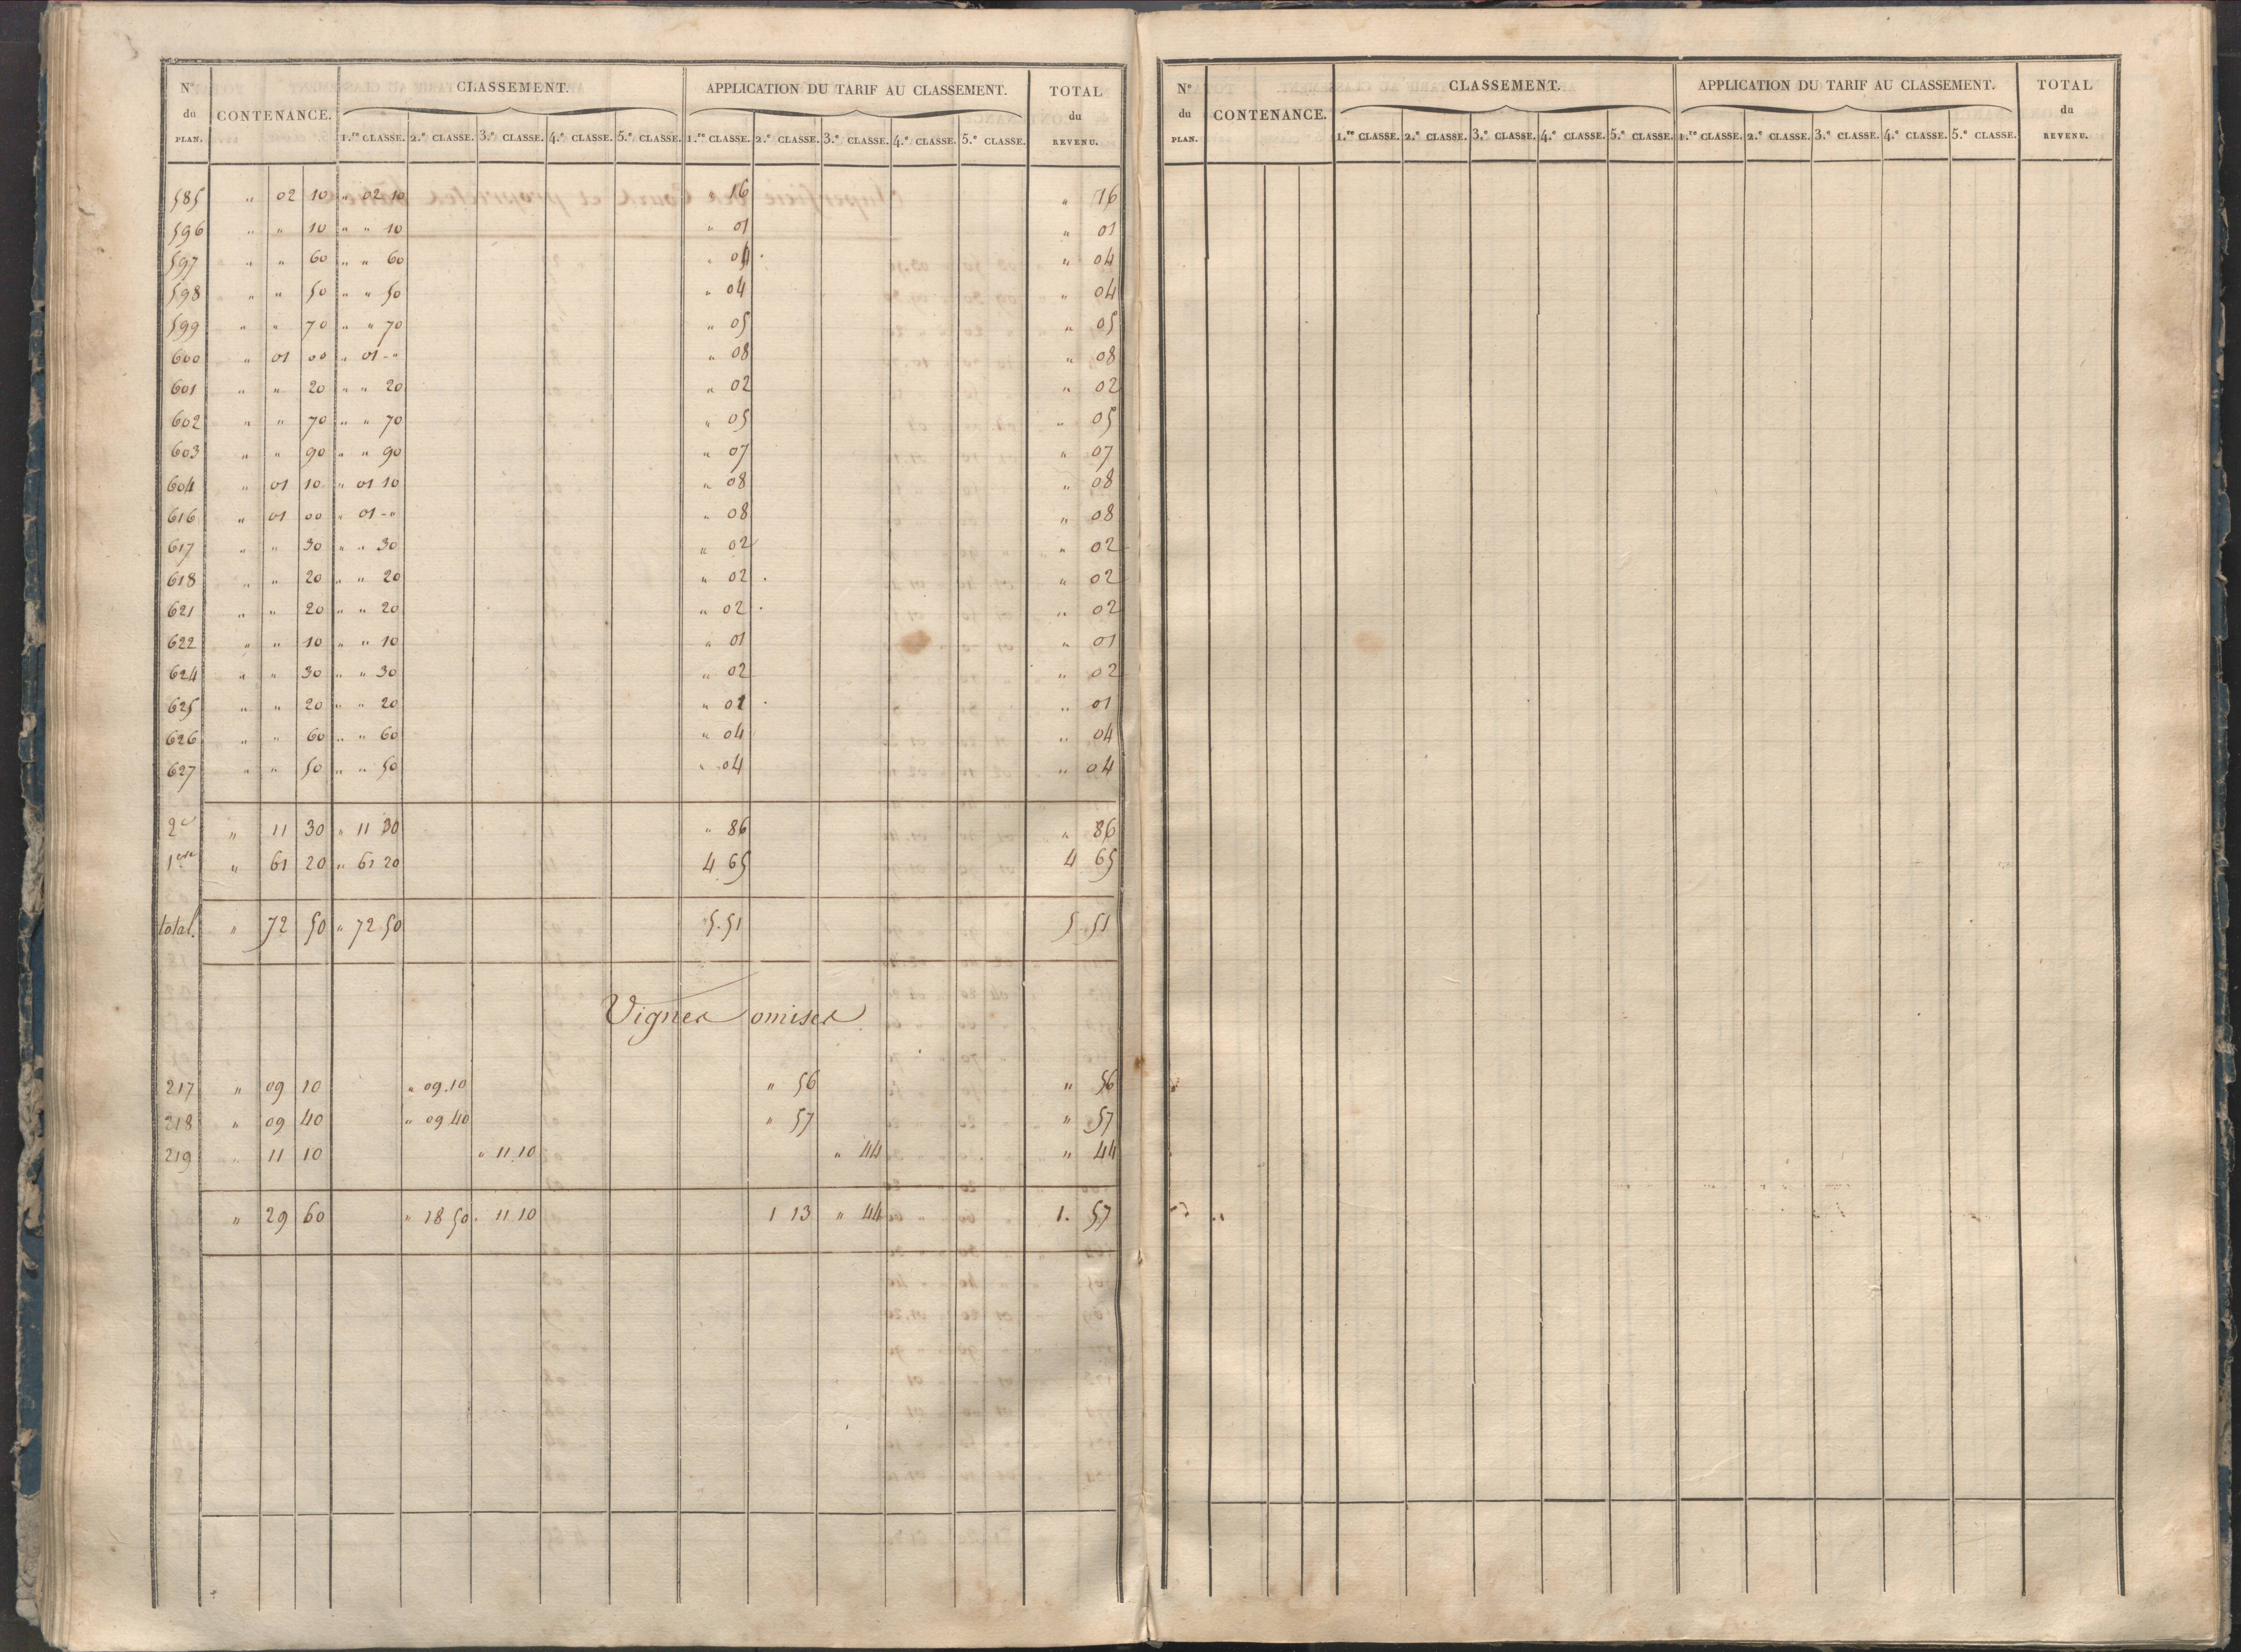 N.º du PLAN. CONTENANCE. CLASSEMENT. APPLICATION DU TARIF AU CLASSEMENT. TOTAL du REVENU.
1.re CLASSE. 2.e CLASSE. 3.e CLASSE. 4.e CLASSE. 5.e CLASSE. 1.re CLASSE. 2.e CLASSE. 3.e CLASSE. 4.e CLASSE. 5.e CLASSE.
585 " 02 10 " 02 10 " 16 " 16
596 " " 10 " " 10 " 01 " 01
597 " " 60 " " 60 " 04 " 04
598 " " 50 " " 50 " 04 " 04
599 " " 70 " " 70 " 05 " 05
600 " 01 00 " 01 - " " 08 " 08
601 " " 20 " " 20 " 02 " 02
602 " " 70 " " 70 " 05 " 05
603 " " 90 " " 90 " 07 " 07
604 " 01 10 " 01 10 " 08 " 08
616 " 01 00 " 01 - " " 08 " 08
617 " " 30 " " 30 " 02 " 02
618 " " 20 " " 20 " 02 " 02
621 " " 20 " " 20 " 02 " 02
622 " " 10 " " 10 " 01 " 01
624 " " 30 " " 30 " 02 " 02
625 " " 20 " " 20 " 01 " 01
626 " " 60 " " 60 " 04 " 04
627 " " 50 " " 50 " 04 " 04
2e " 11 30 " 11 30 " 86 " 86
1ere " 61 20 " 61 20 4 65 4 65
total. " 72 50 " 72 50 5.51 5.51
Vignes omises
217 " 09 10 " 09.10 " 56 " 56
218 " 09 40 " 09 40 " 57 " 57
219 " 11 10 " 11.10 " 44 " 44
" 29 60 " 18 50 " 11 10 1 13 " 44 1. 57
N.º du PLAN. CONTENANCE. CLASSEMENT. APPLICATION DU TARIF AU CLASSEMENT. TOTAL du REVENU.
1.re CLASSE. 2.e CLASSE. 3.e CLASSE. 4.e CLASSE. 5.e CLASSE. 1.re CLASSE. 2.e CLASSE. 3.e CLASSE. 4.e CLASSE. 5.e CLASSE.